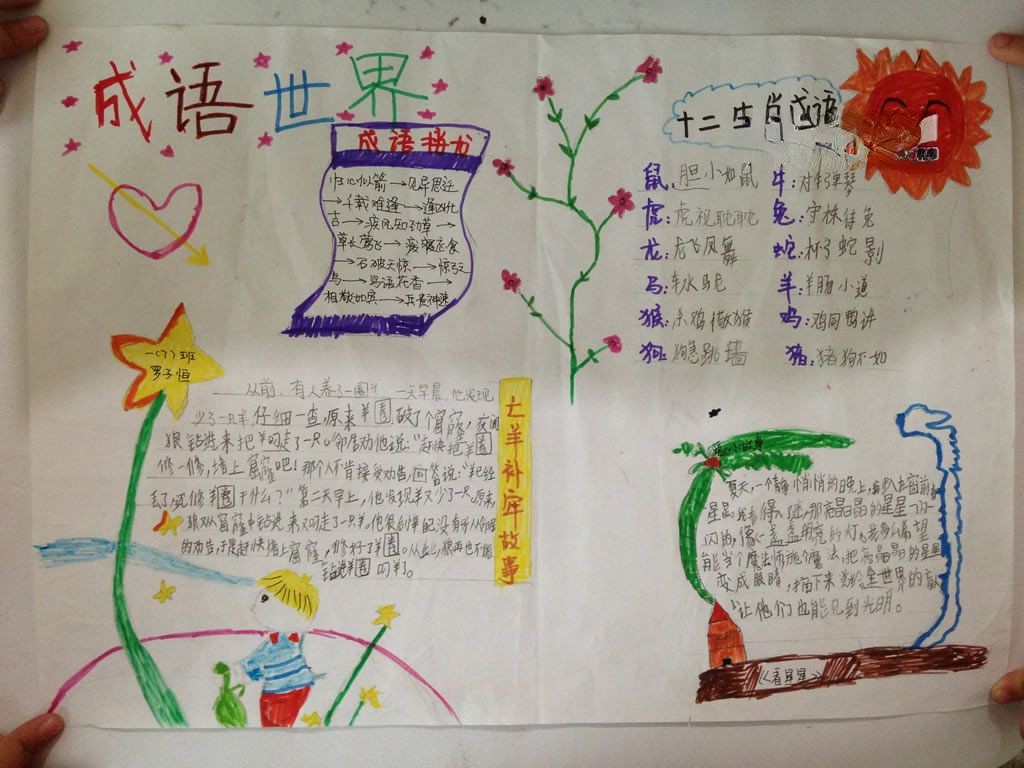 成语世界
成语接龙
归心似箭→见异思迁
→千载难逢→逢凶化
吉→疾风知劲草→
草长莺飞→废寝忘食
→石破天惊→惊弓之
鸟→鸟语花香→
相敬如宾→兵贵神速
一(7)班
罗子恒
从前，有人养了一圈羊 一天早晨，他发现
少了一只羊仔细一查，原来羊圈破了个窟窿，夜间
狼钻进来把羊叼走了一只。邻居劝他说：“赶快把羊圈
修一修，堵上窟窿吧！那个人不肯接受劝告，回答说：“羊已经
丢了，还修羊圈干什么？”第二天早上，他发现羊又少了一只。原来，
狼又从窟窿中钻进来又叼走了一只羊。他很后悔
的劝告，于是赶快堵上窟窿，修好了羊圈。从此，狼再也不能
钻进羊圈叼羊了。
亡羊补牢故事
十二生肖成语
鼠：胆小如鼠 牛：对牛弹琴
虎：虎视耽耽 兔：守株待兔
龙：龙飞凤舞 蛇：杯弓蛇影
马：车水马龙 羊：羊肠小道
猴：杀鸡儆猴 鸡：鸡同鸭讲
狗：狗急跳墙 猪：猪狗不如
小故事
夏天，一个静悄悄的晚上，我趴在窗前看
星星，那亮晶晶的星星一闪一
闪的，像一盏盏明亮的灯。我多么希望
能当个魔法师，施个魔法，把亮晶晶的星星
变成眼睛，摘下来送给全世界的盲人
让他们也能见到光明。
《看星星》